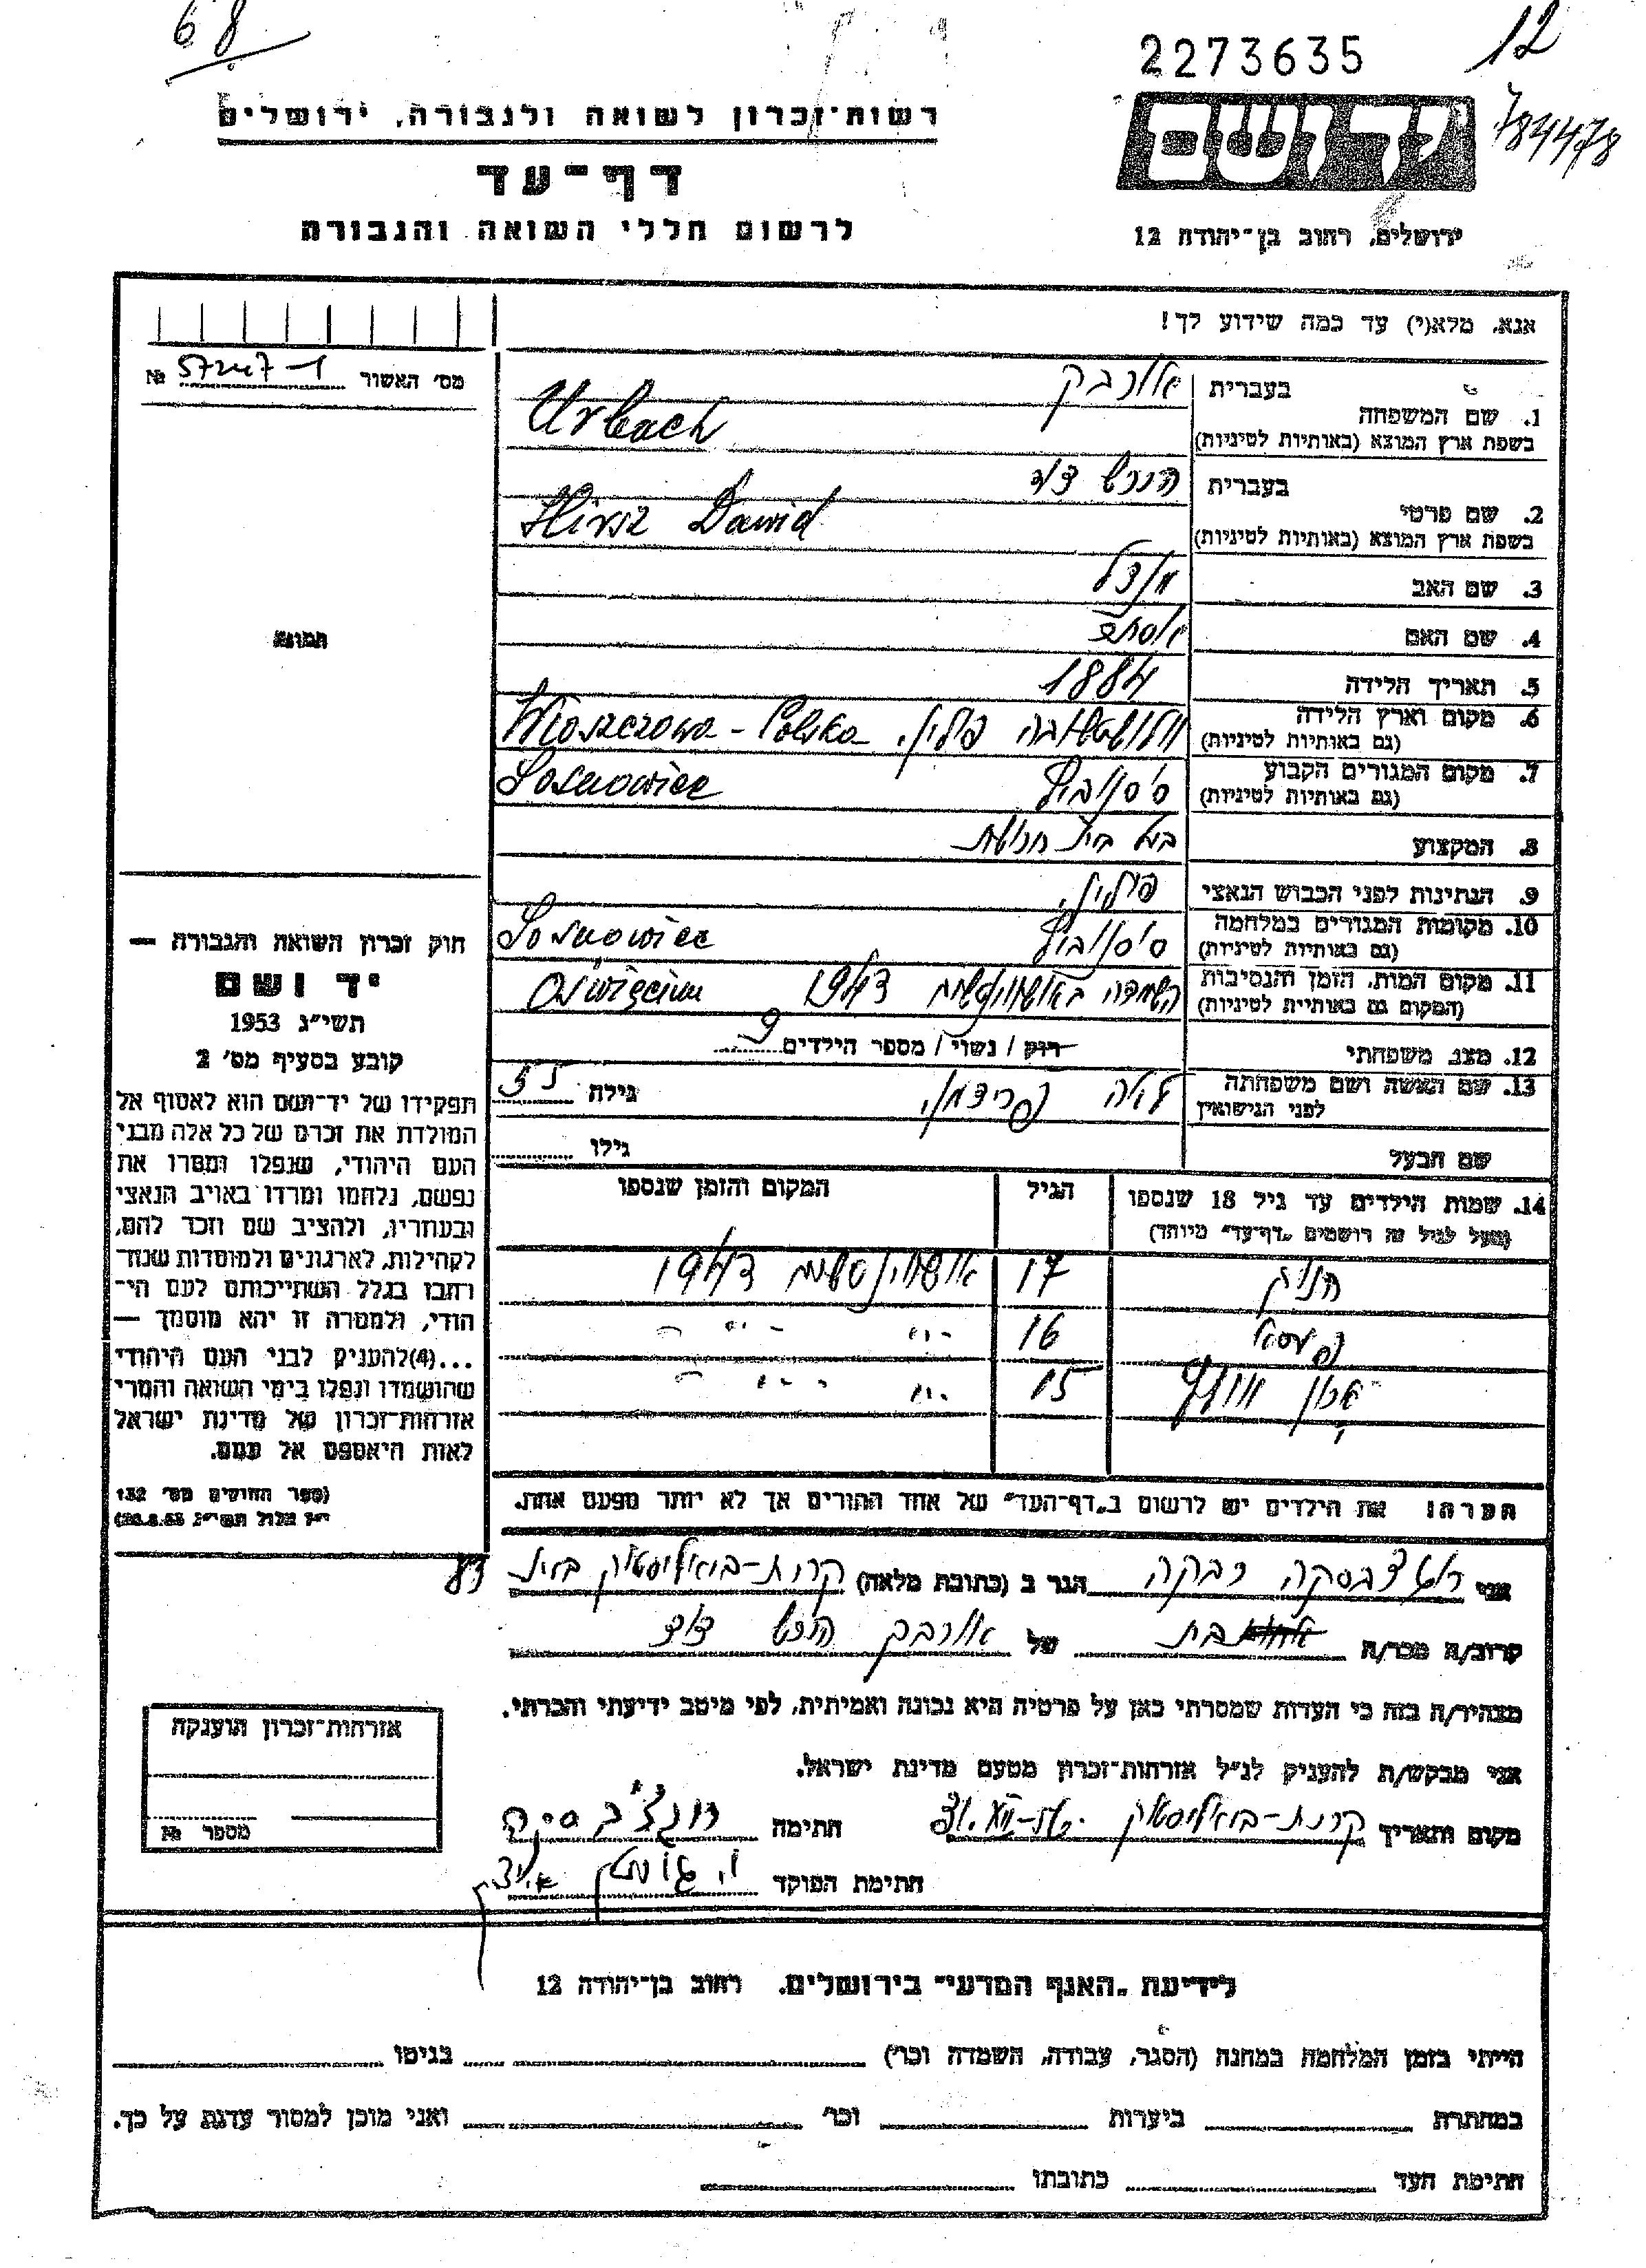 68
2273635
12
784478
רשות־זכרון לשואה ולגבורה, ירושלים
דף־עד
לרשום חללי השואה והגבורה
יד ושם
ירושלים, רחוב בן־יהודה 12
אנא, מלא(י) עד כמה שידוע לך!
מס' האשור № 57247-1
תמונה
בעברית אורבך
1. שם המשפחה
בשפת ארץ המוצא (באותיות לטיניות) Urbach
בעברית הירש דוד
2. שם פרטי
בשפת ארץ המוצא (באותיות לטיניות) Hirsz Dawid
3. שם האב מנדל
4. שם האם אסתר
5. תאריך הלידה 1884
6. מקום וארץ הלידה
(גם באותיות לטיניות) פולין. Wloszczowa - Polska
7. מקום המגורים הקבוע
(גם באותיות לטיניות) סוסנוביץ Sosnowiec
8. המקצוע בעל בית חרושת
9. הנתינות לפני הכבוש הנאצי פולין.
10. מקומות המגורים במלחמה
(גם באותיות לטיניות) סוסנוביץ Sosnowiec
11. מקום המות, הזמן והנסיבות
(המקום גם באותיות לטיניות) 1943 Oświęcim
12. מצב משפחתי רווק / נשוי / מספר הילדים 9
13. שם האשה ושם משפחתה
לפני הנישואין פרידמן. גילה 55
שם הבעל גילו
14. שמות הילדים עד גיל 18 שנספו הגיל המקום והזמן שנספו
(מעל לגיל זה רושמים „דף־עד" מיוחד)
17 1943
16 - " - " -
15 - " - " -
הערה! את הילדים יש לרשום ב„דף־העד" של אחד ההורים אך לא יותר מפעם אחת.
חוק זכרון השואה והגבורה —
יד ושם
תשי"ג 1953
קובע בסעיף מס' 2
תפקידו של יד־ושם הוא לאסוף אל
המולדת את זכרם של כל אלה מבני
העם היהודי, שנפלו ומסרו את
נפשם, נלחמו ומרדו באויב הנאצי
ובעוזריו, ולהציב שם וזכר להם,
לקהילות, לארגונים ולמוסדות שנח־
רבו בגלל השתייכותם לעם הי־
הודי, ולמטרה זו יהא מוסמך —
...(4)להעניק לבני העם היהודי
שהושמדו ונפלו בימי השואה והמרי
אזרחות־זכרון של מדינת ישראל
לאות היאספם אל עמם.
(ספר החוקים מס' 132
י"ז אלול תשי"ג 28.8.53)
אני רבקה הגר ב (כתובת מלאה) קרית-ביאליסטוק
קרוב/ה מכר/ה בת של אורבך הירש דוד
מצהיר/ה בזה כי העדות שמסרתי כאן על פרטיה היא נכונה ואמיתית, לפי מיטב ידיעתי והכרתי.
אני מבקש/ת להעניק לנ"ל אזרחות־זכרון מטעם מדינת ישראל.
מקום ותאריך קרית-ביאליסטוק חתימה
חתימת הפוקד
אזרחות־זכרון הוענקה
מספר №
לידיעת „האגף המדעי" בירושלים, רחוב בן־יהודה 12
הייתי בזמן המלחמה במחנה (הסגר, עבודה, השמדה וכו') בגיטו
במחתרת ביערות וכו' ואני מוכן למסור עדות על כך.
חתימת העד כתובתו